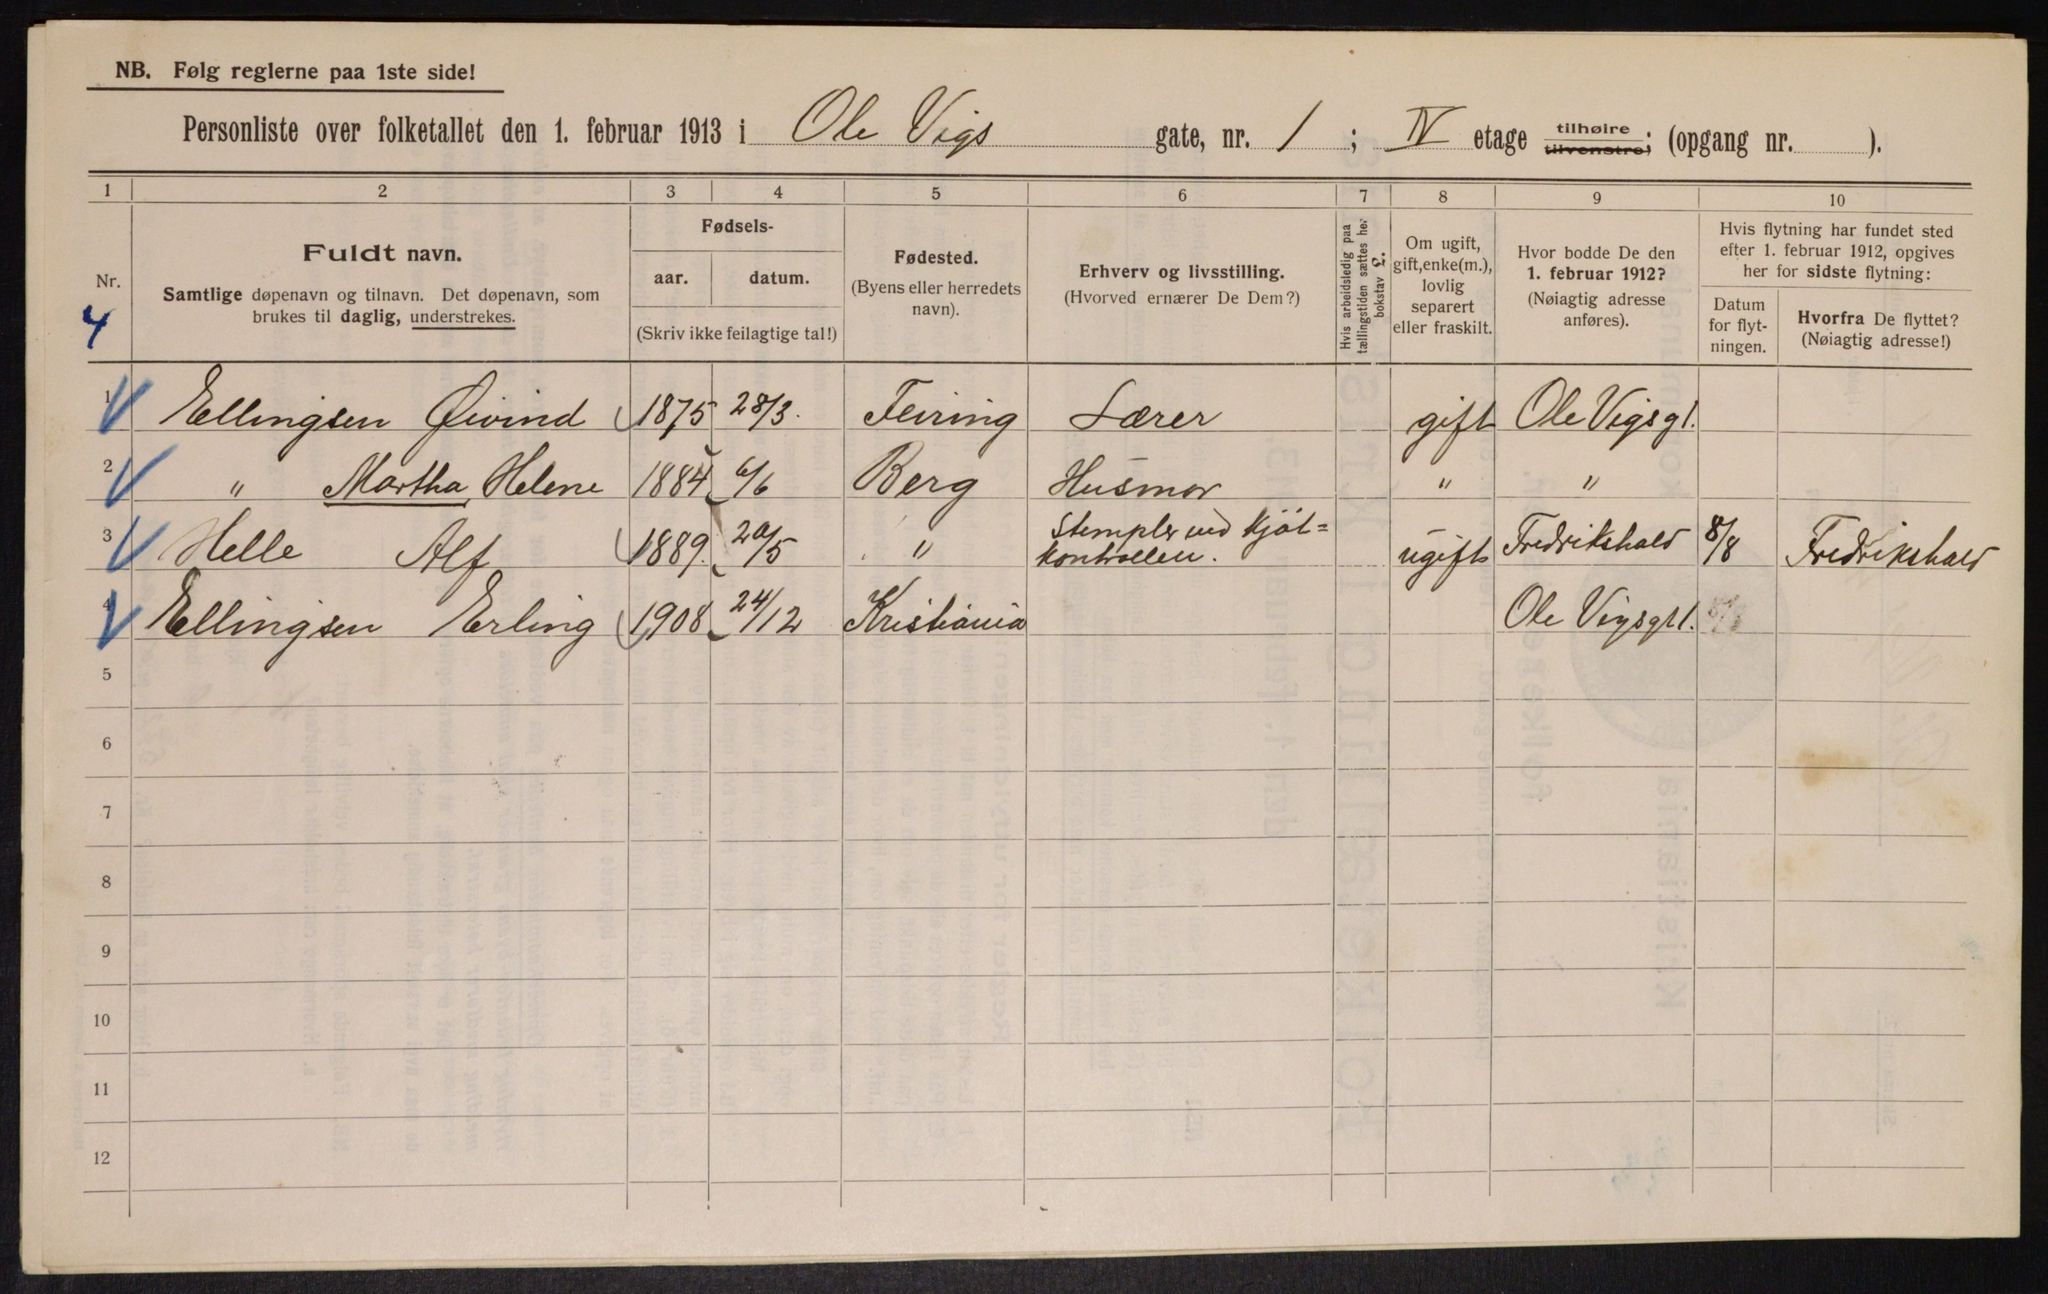 NB. Følg reglerne paa 1ste side!
Personliste over folketallet den 1. februar 1913 i Ole Vigs gate, nr. 1 ; IV etage tilhøire tilvenstre; (opgang nr. ).
1 2 3 4 5 6 7 8 9 10
Nr.
4
Fuldt navn.
Samtlige døpenavn og tilnavn. Det døpenavn, som
brukes til daglig, understrekes.
Fødsels-
aar. datum.
(Skriv ikke feilagtige tal!)
Fødested.
(Byens eller herredets
navn).
Erhverv og livsstilling.
(Hvorved ernærer De Dem?)
Hvis arbeidsledig paa
tællingstiden sættes her
bokstav L.
Om ugift,
gift, enke(m.),
lovlig
separert
eller fraskilt.
Hvor bodde De den
1. februar 1912?
(Nøiagtig adresse
anføres).
Hvis flytning har fundet sted
efter 1. februar 1912, opgives
her for sidste flytning:
Datum
for flyt-
ningen.
Hvorfra De flyttet?
(Nøiagtig adresse!)
1 Ellingsen Øivind 1875 28/3. Feiring Lærer gift Ole Vigsg 1.
2 " Martha Helene 1884 6/6 Berg Husmor " "
3 Helle Alf 1889. 20/5 " Stempler ved Kjöt-
kontrollen. ugift Fredrikshald 8/8 Fredrikshald
4 Ellingsen Erling 1908 24/12 Kristiania Ole Vigsgt 1.
5
6
7
8
9
10
11
12